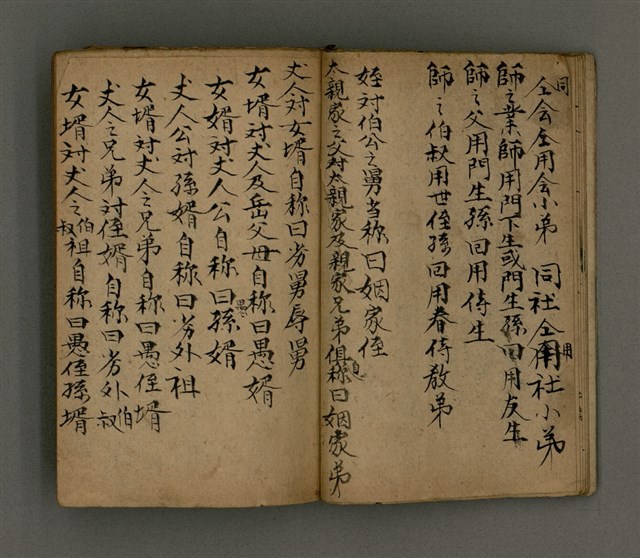 同会仝用会小弟　同社仝用社小弟
師之業師用門下生或門生孫回用友生
師之父用門生孫回用侍生
師之伯叔用世侄孫回用眷侍教弟
姪対伯公之舅当称曰姻家侄
太親家之父対太親家及親家兄弟俱称曰姻家弟
丈人対女壻自称曰劣舅辱舅
女壻対丈人及岳父母自称曰愚婿
女婿対丈人公自称曰愚孫婿
丈人公対孫婿自称曰劣外祖
女壻対丈人之兄弟自称曰愚侄壻
丈人之兄弟対侄婿自称曰劣外伯叔
女壻対丈人之伯叔祖自称曰愚侄孫壻